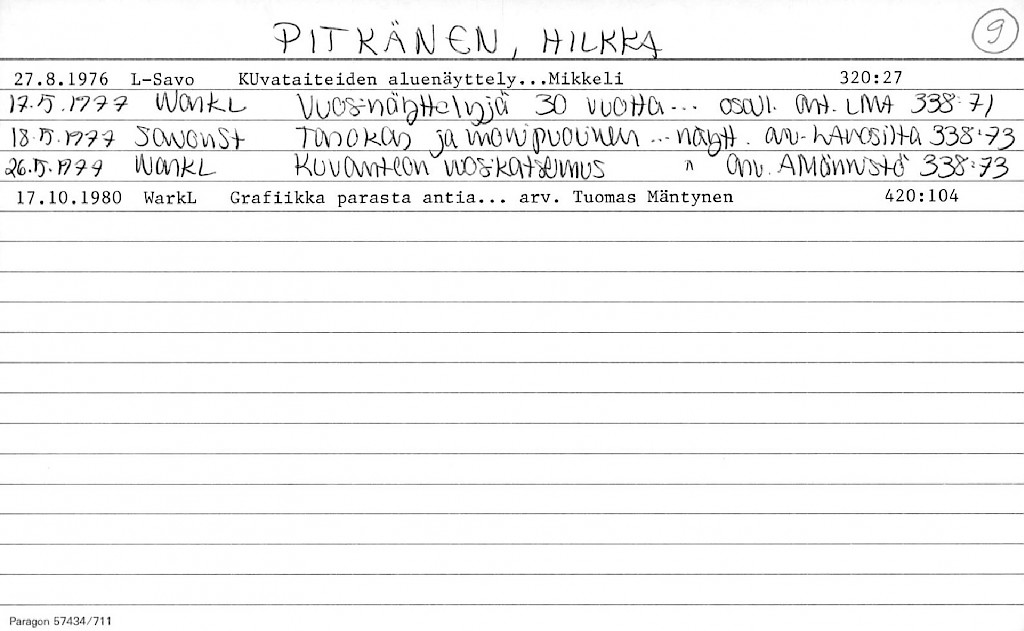 PITKÄNEN, HILKKA 9
27.8.1976 L-Savo KUvataiteiden aluenäyttely...Mikkeli 320:27
17.5.1977 WarkL Vuosinäyttelyjä 30 vuotta... osall. ant. LMA 338:71
18.5.1977 SavonSt Tasokas ja monipuolinen ... näytt. arv. 338:73
26.5.1977 WarkL Kuvanteon vuosikatselmus " arv. AMännistö 338:73
17.10.1980 WarkL Grafiikka parasta antia... arv. Tuomas Mäntynen 420:104
Paragon 57434/711